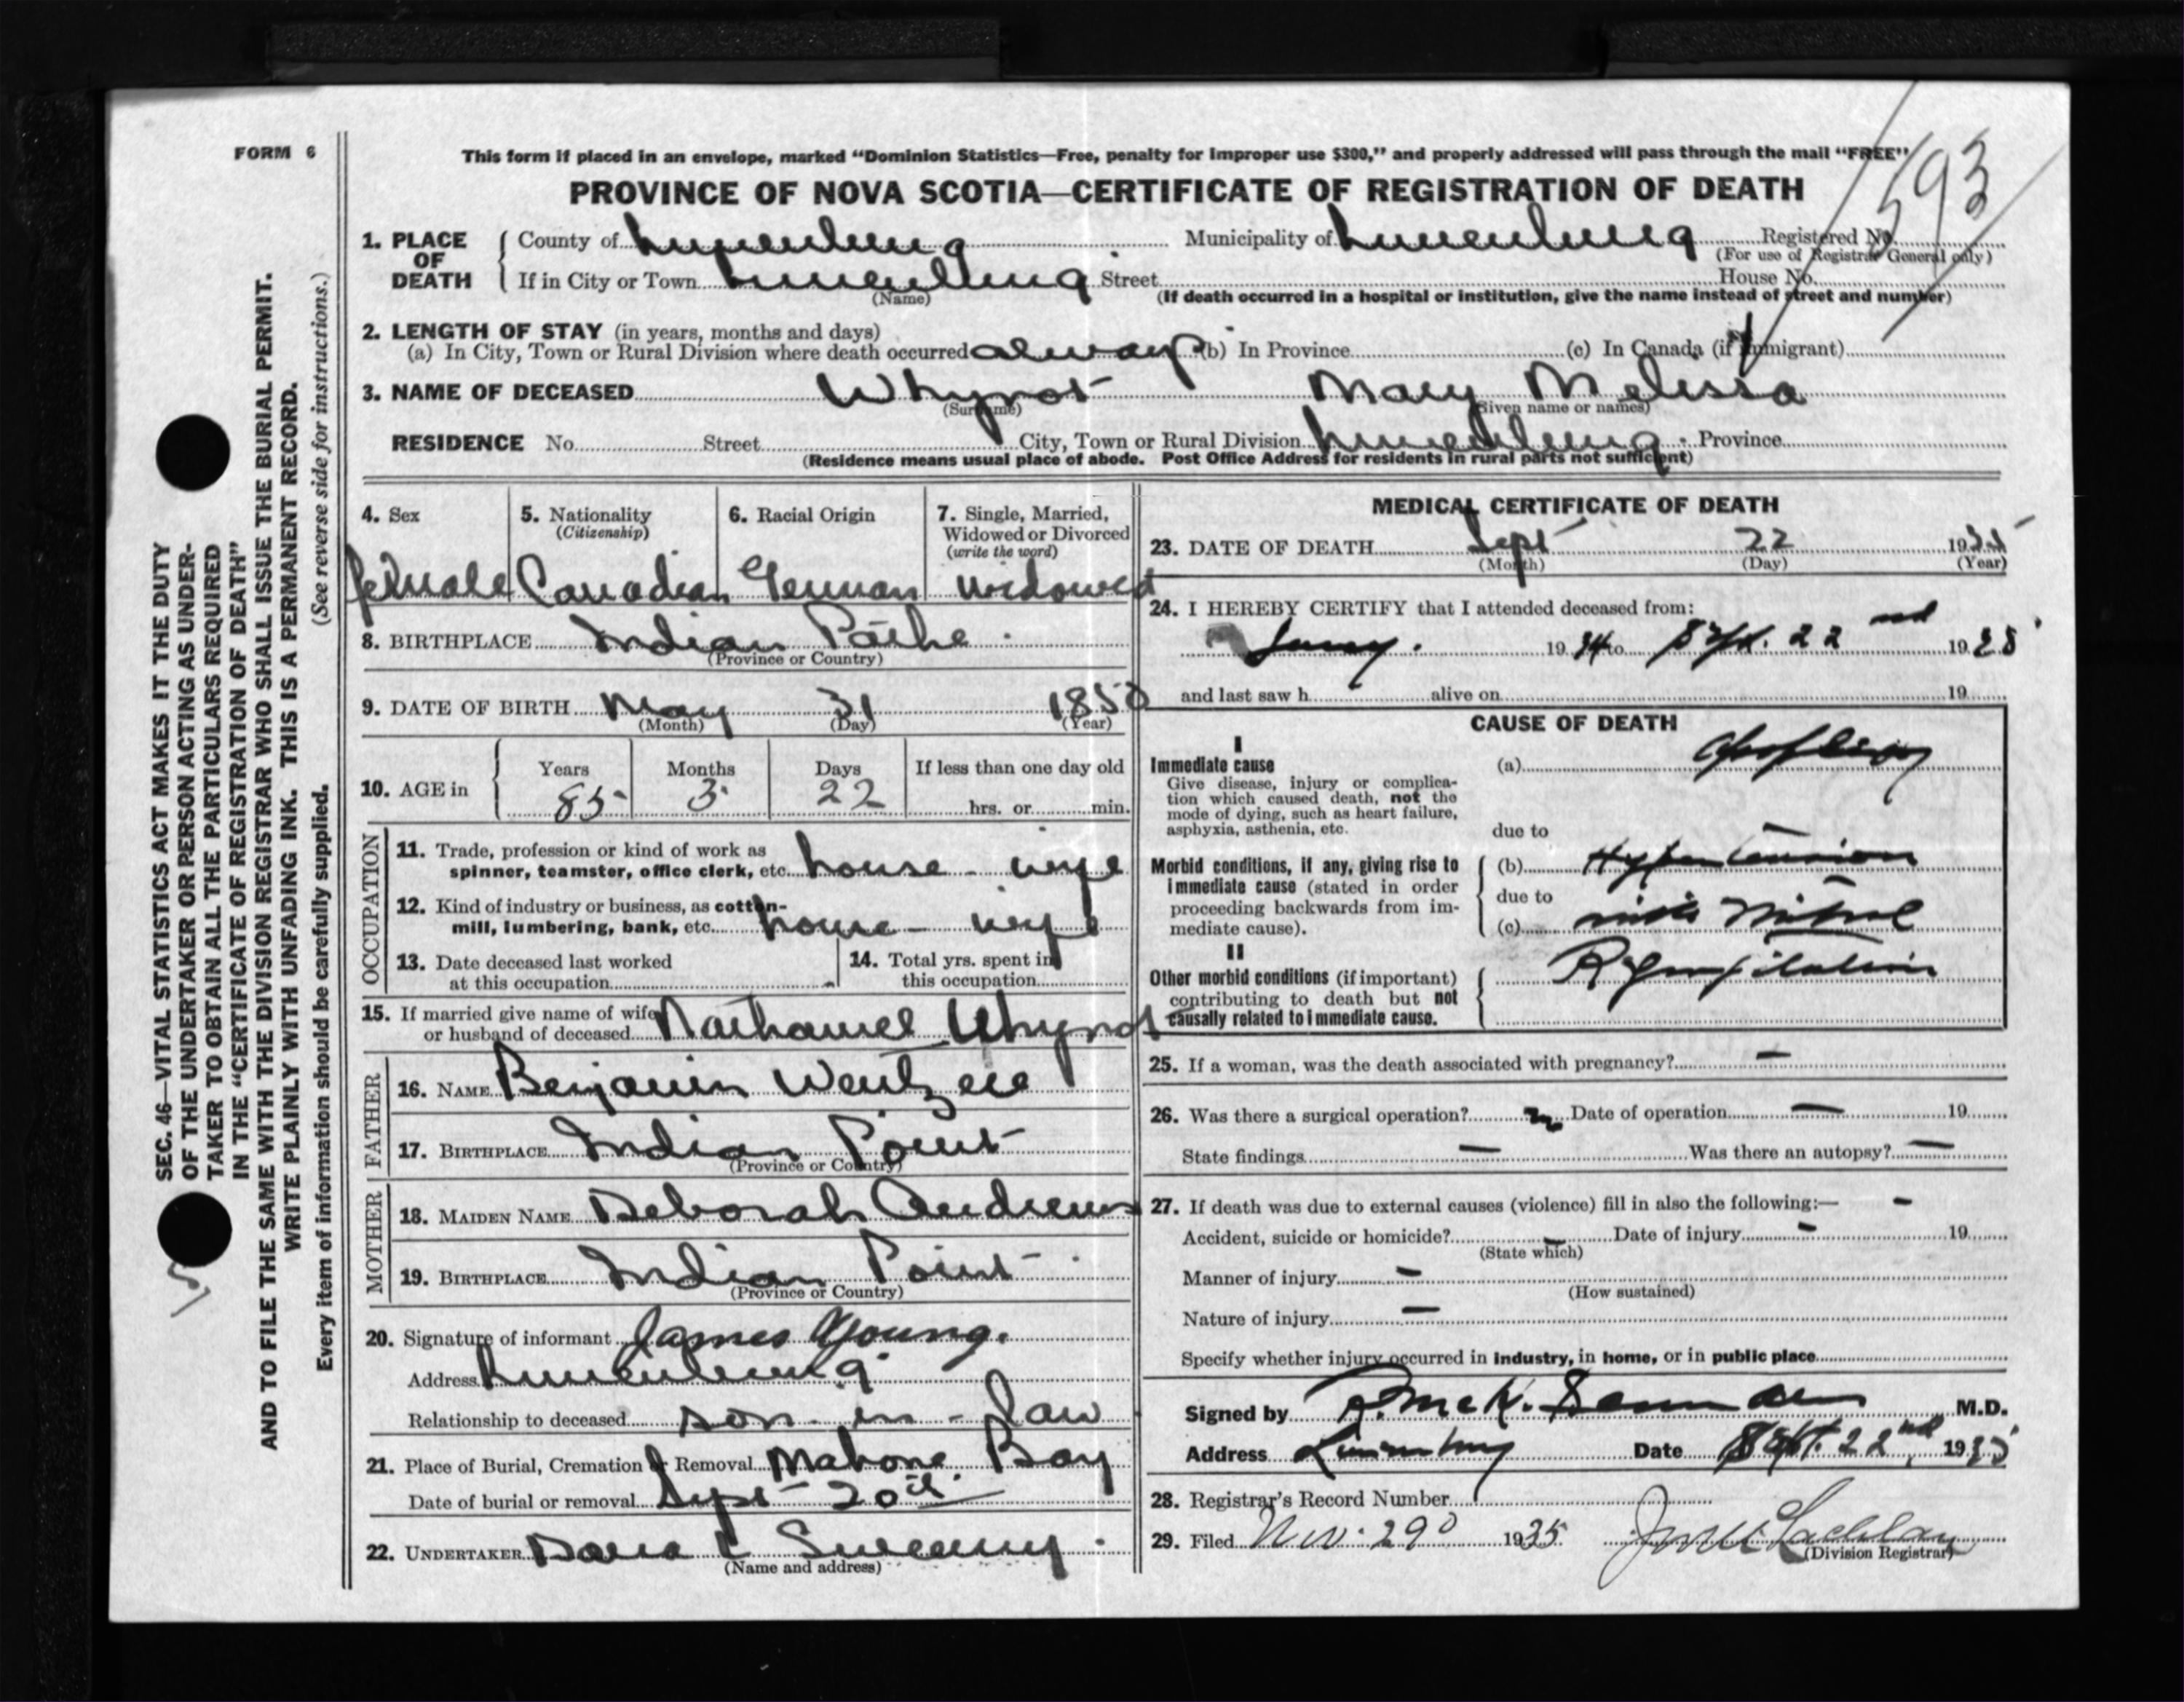 FORM 6
This form if placed in an envelope, marked “Dominion Statistics—Free, penalty for improper use $300,” and properly addressed will pass through the mail “FREE”
PROVINCE OF NOVA SCOTIA—CERTIFICATE OF REGISTRATION OF DEATH
593
1. PLACE OF DEATH
County of Lunenburg Municipality of Lunenburg Registered No.
(For use of Registrar General only)
If in City or Town Lunenburg Street House No.
(Name) (If death occurred in a hospital or institution, give the name instead of street and number)
2. LENGTH OF STAY (in years, months and days)
(a) In City, Town or Rural Division where death occurred always (b) In Province (c) In Canada (if immigrant)
3. NAME OF DECEASED Whynot Mary Melissa
(Surname) (Given name or names)
RESIDENCE No. Street City, Town or Rural Division Lunenburg Province
(Residence means usual place of abode. Post Office Address for residents in rural parts not sufficient)
4. Sex
female
5. Nationality
(Citizenship)
Canadian
6. Racial Origin
German
7. Single, Married,
Widowed or Divorced
(write the word)
widowed
8. BIRTHPLACE Indian Pathe
(Province or Country)
9. DATE OF BIRTH May 31 1850
(Month) (Day) (Year)
10. AGE in
Years Months Days If less than one day old
85 3 22 hrs. or min.
OCCUPATION
11. Trade, profession or kind of work as
spinner, teamster, office clerk, etc. house - wife
12. Kind of industry or business, as cotton-
mill, lumbering, bank, etc. house - wife
13. Date deceased last worked
at this occupation
14. Total yrs. spent in
this occupation
15. If married give name of wife
or husband of deceased Nathaniel Whynot
FATHER
16. NAME Benjamin Wentzell
17. BIRTHPLACE Indian Point
(Province or Country)
MOTHER
18. MAIDEN NAME Deborah Andrews
19. BIRTHPLACE Indian Point
(Province or Country)
20. Signature of informant James Young.
Address Lunenburg
Relationship to deceased son-in-law
21. Place of Burial, Cremation or Removal Mahone Bay
Date of burial or removal Sept 20th
22. UNDERTAKER Sweeny
(Name and address)
MEDICAL CERTIFICATE OF DEATH
23. DATE OF DEATH Sept 22 1935
(Month) (Day) (Year)
24. I HEREBY CERTIFY that I attended deceased from:
1934 to Sept. 22nd 1935
and last saw h alive on 19
CAUSE OF DEATH
I
Immediate cause
Give disease, injury or complica-
tion which caused death, not the
mode of dying, such as heart failure,
asphyxia, asthenia, etc.
(a) Apoplexy
due to
Morbid conditions, if any, giving rise to
immediate cause (stated in order
proceeding backwards from im-
mediate cause).
(b) Hypertension
due to
(c) with Mitral
II
Other morbid conditions (if important)
contributing to death but not
causally related to immediate cause.
Regurgitation
25. If a woman, was the death associated with pregnancy? —
26. Was there a surgical operation? no Date of operation — 19
State findings — Was there an autopsy? —
27. If death was due to external causes (violence) fill in also the following:— -
Accident, suicide or homicide? - Date of injury - 19
(State which)
Manner of injury -
(How sustained)
Nature of injury —
Specify whether injury occurred in industry, in home, or in public place
Signed by M.D.
Address Lunenburg Date Sept. 22nd, 1935
28. Registrar's Record Number
29. Filed Nov. 29 1935
(Division Registrar)
SEC. 46—VITAL STATISTICS ACT MAKES IT THE DUTY
OF THE UNDERTAKER OR PERSON ACTING AS UNDER-
TAKER TO OBTAIN ALL THE PARTICULARS REQUIRED
IN THE “CERTIFICATE OF REGISTRATION OF DEATH”
AND TO FILE THE SAME WITH THE DIVISION REGISTRAR WHO SHALL ISSUE THE BURIAL PERMIT.
WRITE PLAINLY WITH UNFADING INK. THIS IS A PERMANENT RECORD.
Every item of information should be carefully supplied. (See reverse side for instructions.)